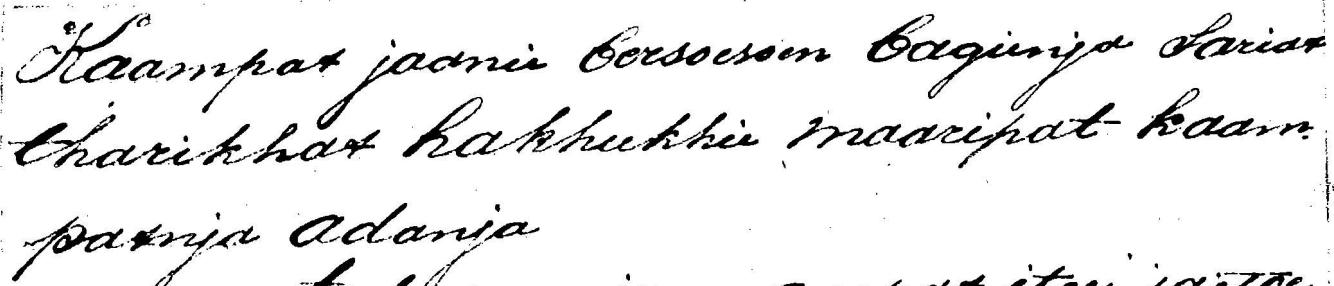 Kaampat jaanii bersoesoen bagiinja sariat
tharikhat hakhukhii maaripat kaam-
patnja adanja